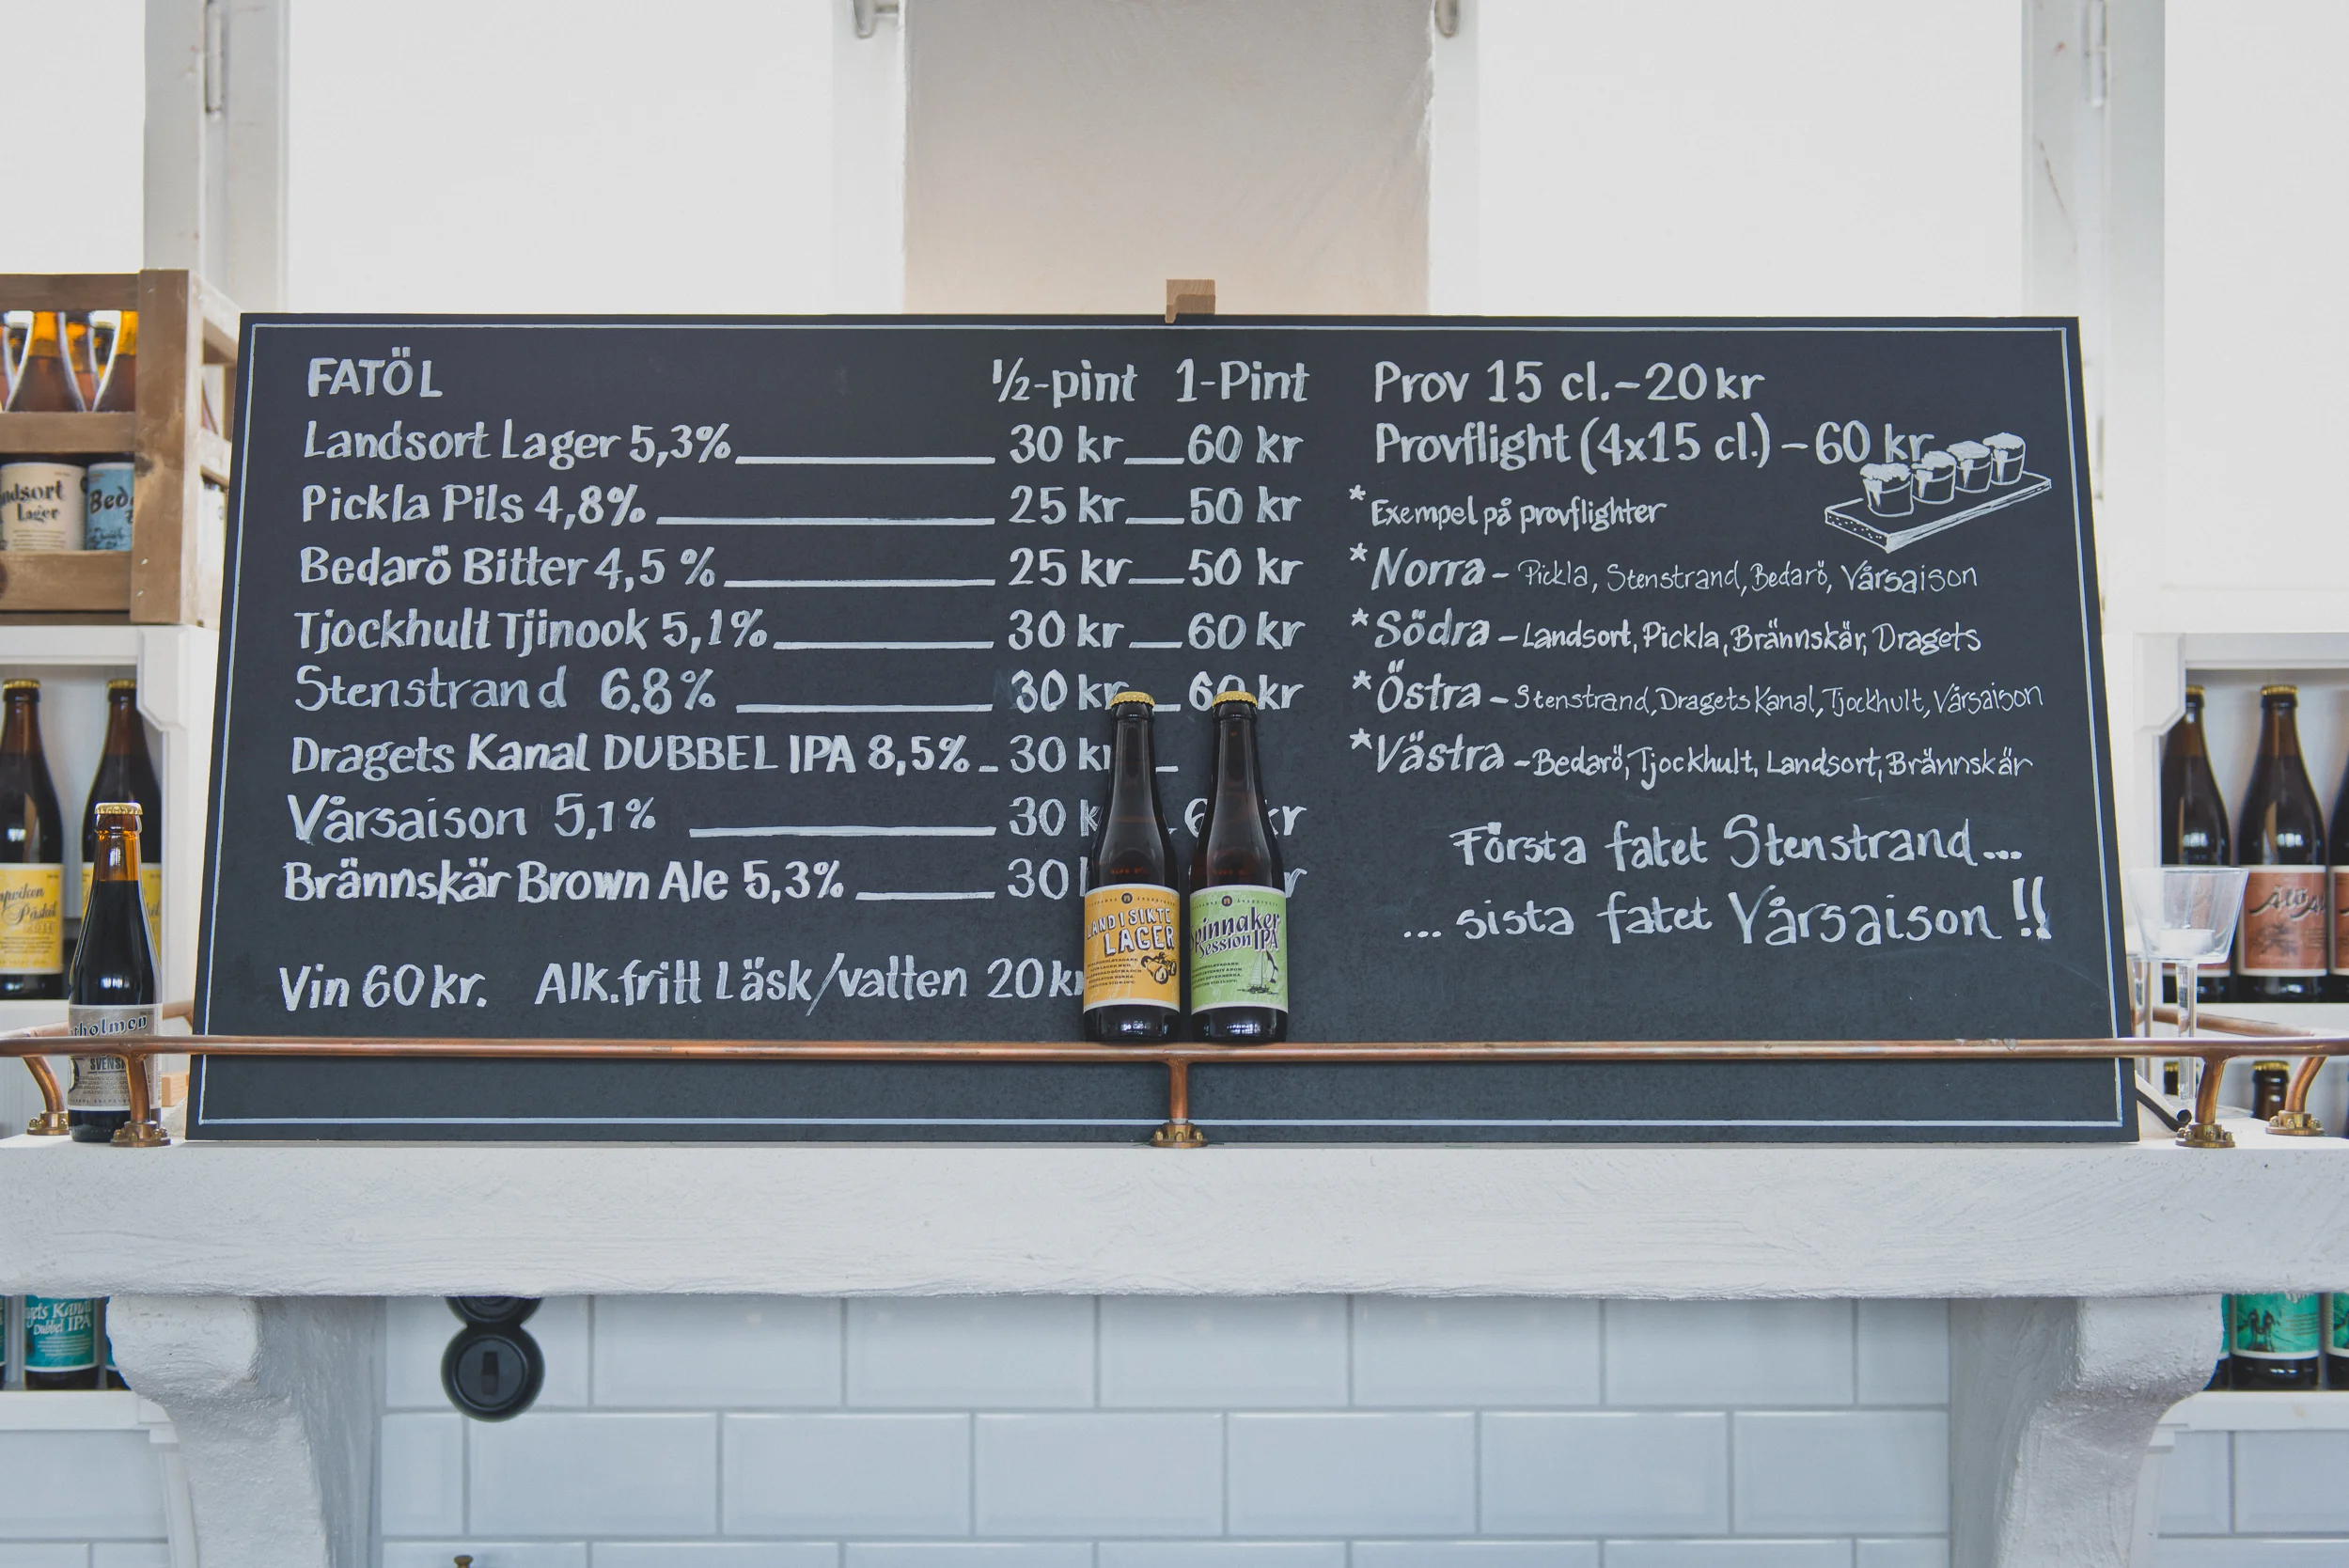 FATÖL ½-pint 1-Pint
Landsort Lager 5,3% 30 kr 60 kr
Pickla Pils 4,8% 25 kr 50 kr
Bedarö Bitter 4,5% 25 kr 50 kr
Tjockhult Tjinook 5,1% 30 kr 60 kr
Stenstrand 6.8% 30 kr 60 kr
Dragets Kanal DUBBEL IPA 8,5% 30 kr
Vårsaison 5,1% 30 kr
Brännskär Brown Ale 5,3% 30
Vin 60 kr. Alk.fritt Läsk/vatten 20 kr
Prov 15 cl.-20 kr
Provflight (4x15 cl.) - 60 kr
*Exempel på provflighter
*Norra - Pickla, Stenstrand, Bedarö, Vårsaison
*Södra - Landsort, Pickla, Brännskär, Dragets
*Östra - Stenstrand, Dragets Kanal, Tjockhult, Vårsaison
*Västra - Bedarö, Tjockhult, Landsort, Brännskär
Första fatet Stenstrand...
... sista fatet Vårsaison !!
LAND I SIKTE
LAGER
Spinnaker
Session IPA
Lager
Påsköl
SVENSK
Dubbel IPA